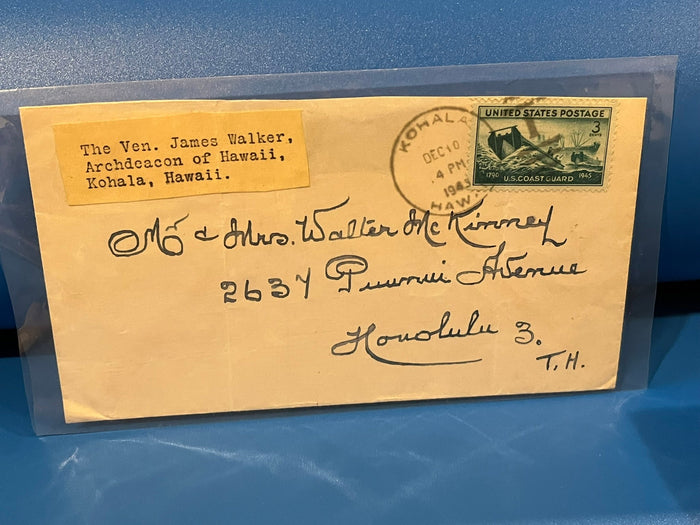 The Ven. James Walker,
Archdeacon of Hawaii,
Kohala, Hawaii.
KOHALA
DEC 10
4 PM
194
HAW
UNITED STATES POSTAGE
3
CENTS
1790 1945
U.S. COAST GUARD
Mr & Mrs. Walter McKinney
2637 Puunui Avenue
Honolulu 3.
T.H.